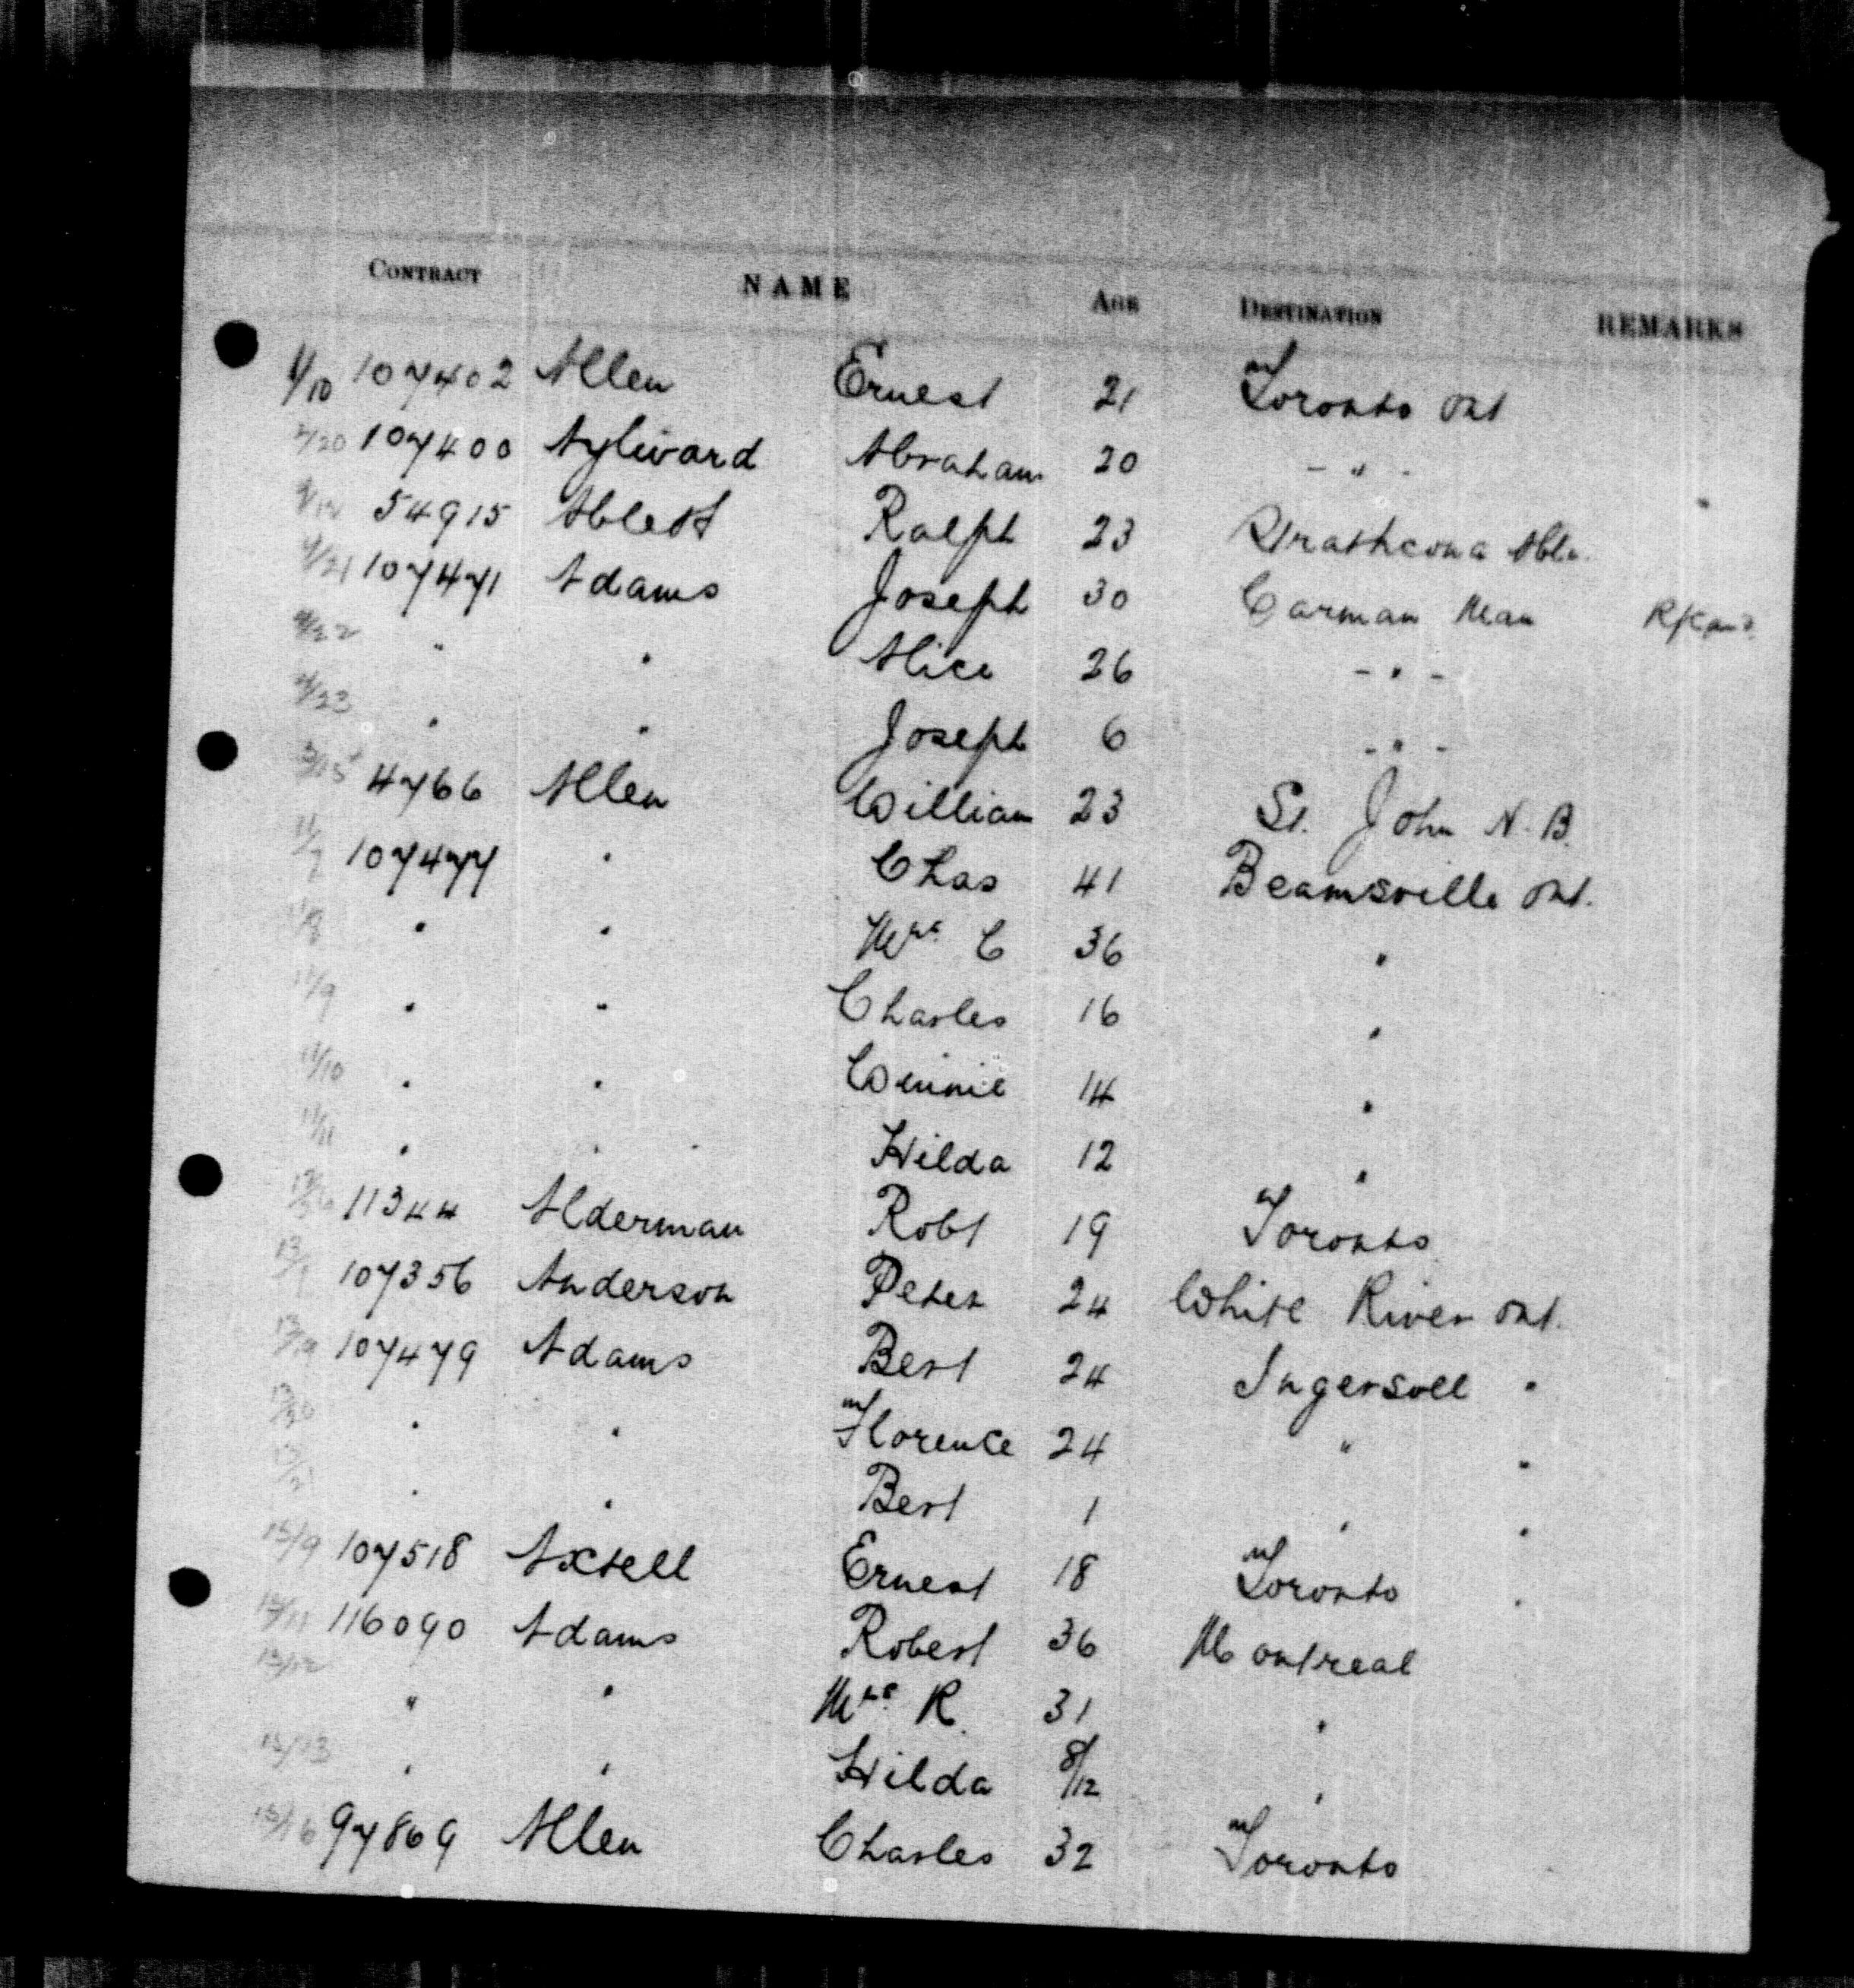 CONTRACT NAME AGE DESTINATION REMARKS
1/10 107402 Allen Ernest 21 Toronto Ont
2/20 107400 Aylward Abraham 20 - " -
54915 Ablett Ralph 23 Strathcona Alta.
4/21 107471 Adams Joseph 30 Carman Man
4/22 " " Alice 26 - " -
4/23 " " Joseph 6 - " -
4766 Allen William 23 St. John N.B.
11/7 107477 " Chas 41 Beamsville Ont.
11/8 " " Mrs C 36 "
11/9 " " Charles 16 "
11/10 " " Winnie 14 "
11/11 " " Hilda 12 "
11344 Alderman Robt 19 Toronto
107356 Anderson Peter 24 White River Ont.
13/19 107479 Adams Bert 24 Ingersoll "
13/20 " " Florence 24 " "
13/21 " " Bert 1 " "
15/9 107518 Axtell Ernest 18 Toronto "
15/11 116090 Adams Robert 36 Montreal
15/12 " " Mrs R. 31 "
15/13 " " Hilda 8/12 "
15/16 97869 Allen Charles 32 Toronto